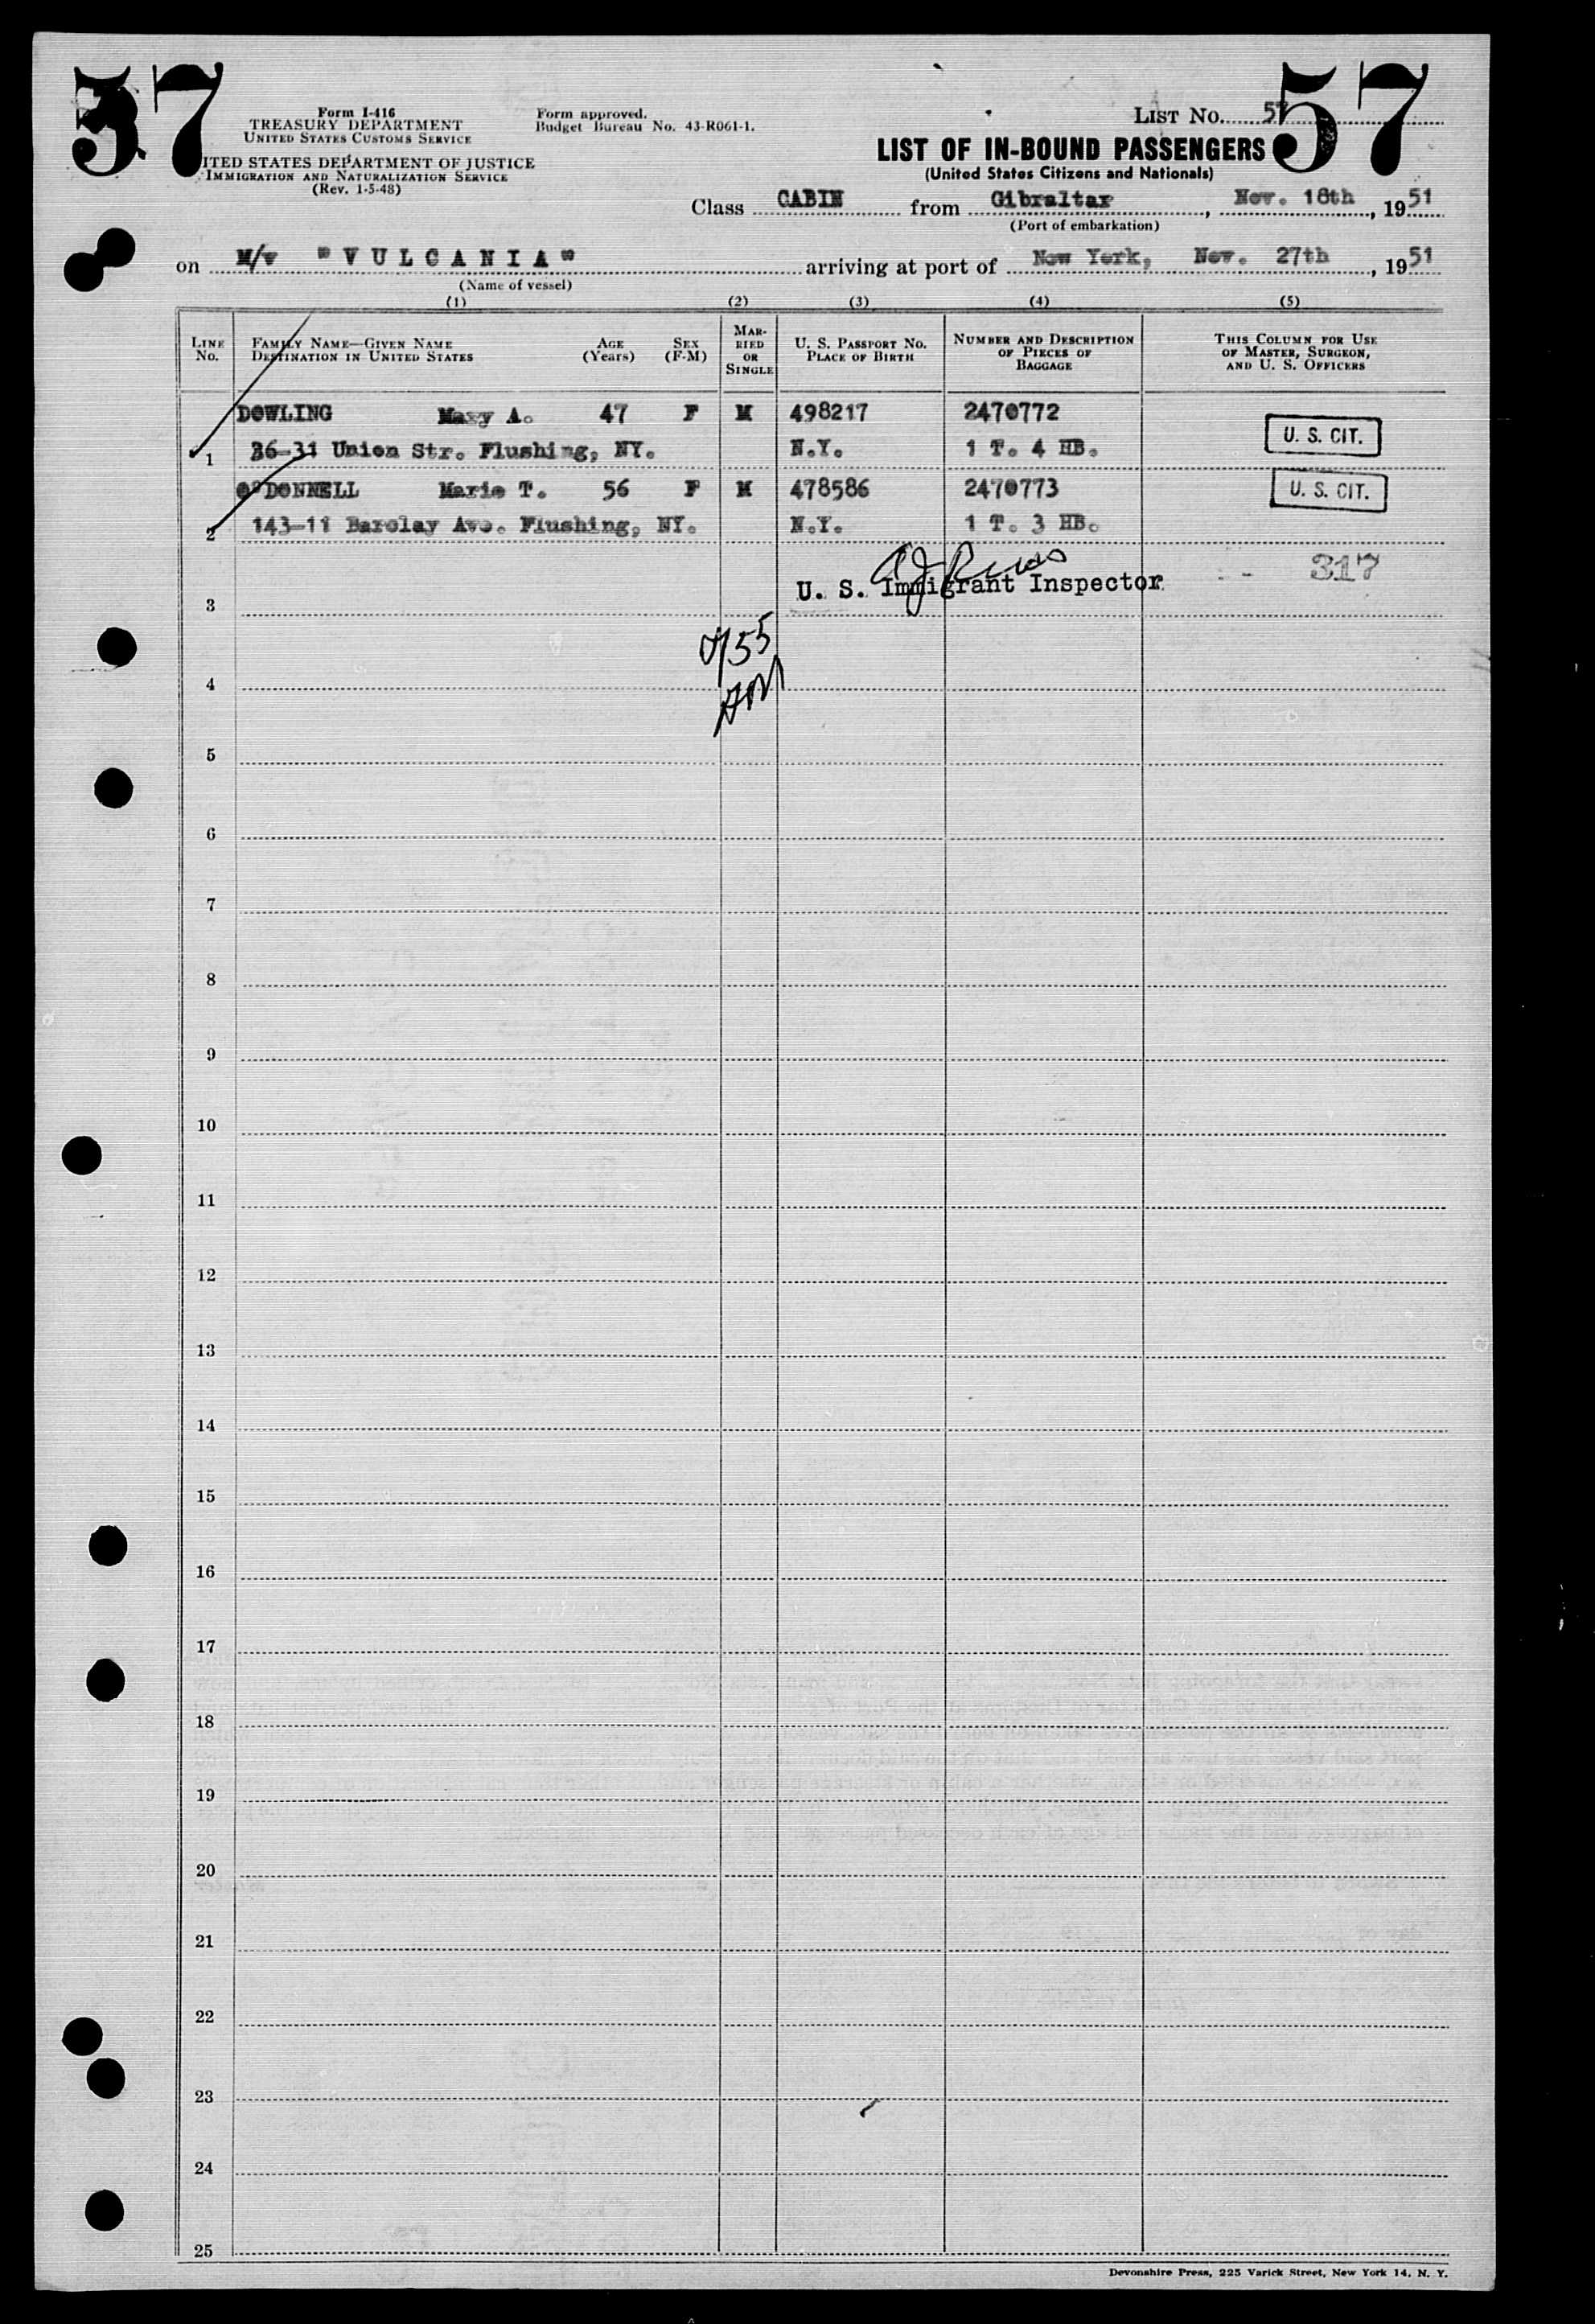 57
57
Form I-416
TREASURY DEPARTMENT
UNITED STATES CUSTOMS SERVICE
ITED STATES DEPARTMENT OF JUSTICE
IMMIGRATION AND NATURALIZATION SERVICE
(Rev. 1-5-48)
Form approved.
Budget Bureau No. 43-R061-1.
LIST No. 57
LIST OF IN-BOUND PASSENGERS
(United States Citizens and Nationals)
Class CABIN from Gibraltar, Nov. 18th, 1951
(Port of embarkation)
on M/v "VULCANIA" arriving at port of New York, Nov. 27th, 1951
(Name of vessel)
(1) (2) (3) (4) (5)
LINE No. FAMILY NAME—GIVEN NAME DESTINATION IN UNITED STATES AGE (Years) SEX (F-M) MARRIED OR SINGLE U. S. PASSPORT NO. PLACE OF BIRTH NUMBER AND DESCRIPTION OF PIECES OF BAGGAGE THIS COLUMN FOR USE OF MASTER, SURGEON, AND U. S. OFFICERS
DOWLING Mary A. 47 F M 498217 2470772 U. S. CIT.
1 36-31 Union Str. Flushing, NY. N.Y. 1 T. 4 HB.
O'DONNELL Marie T. 56 F M 478586 2470773 U. S. CIT.
2 143-11 Barclay Ave. Flushing, NY. N.Y. 1 T. 3 HB.
U. S. Immigrant Inspector 317
3
4
5
6
7
8
9
10
11
12
13
14
15
16
17
18
19
20
21
22
23
24
25
Devonshire Press, 225 Varick Street, New York 14, N. Y.